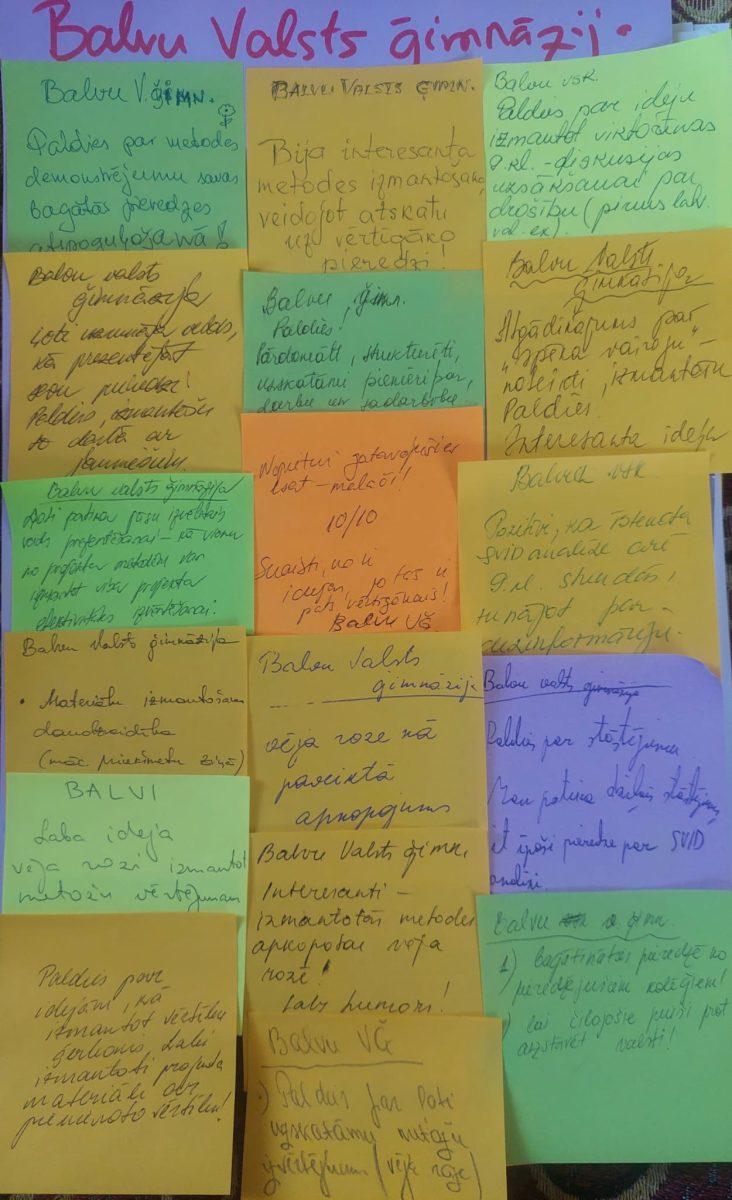 Balvu Valsts ģimnāzij.
Balvu V.ģimn.
Paldies par metodes
demonstrējumu savas
bagātās pieredzes
atspoguļošanā!
BALVU VALSTS ĢIMN.
Bija interesanta
metodes izmantošana,
veidojot atskatu
uz vērtīgāko
pieredzi!
Balvu vsk.
Paldies par ideju
izmantot viktorīnas
9.kl. - diskusijas
uzsākšanai par
drošību (pirms
val. ex).
Balvu valsts
ģimnāzija
Ļoti
kā prezentējāt
savu pieredzi!
Paldies, izmantošu
to darbā ar
jauniešiem.
Balvu ģimn.
Paldies!
Pārdomāti, strukturēti,
uzskatāmi piemēri par
darbu un sadarbību.
Balvu Valsts
ģimnāzija
Atgādinājums par
"spēka vairogu" -
noteikti izmantošu
Paldies.
Interesanta ideja
Balvu valsts ģimnāzija
Ļoti patika jūsu izvēlētais
veids prezentēšanai - kā vienu
no projekta metodēm var
izmantot visa projekta
efektivitātes izvērtēšanai.
Nopietni gatavojušies
esat - malači!
10/10
Skaisti, ka ir
idejas, jo tas ir
pats vērtīgākais!
Balvu VĢ
Balvu vsk
Pozitīvi, ka īstenota
SVID analīze arī
9.kl. stundās,
runājot par
dezinformāciju.
Balvu Valsts ģimnāzija
• Materiālu izmantošana
daudzveidība
(māc. priekšmetu ziņā)
Balvu Valsts
ģimnāzija
vēja roze kā
paveiktā
apkopojums
Balvu valsts ģimnāzija
Paldies par stāstījumu.
Man patika stāstījums,
it īpaši pieredze par SVID
analīzi.
BALVI
Laba ideja
vēja rozi izmantot
metožu vērtējumam
Balvu Valsts ģimn.
Interesanti -
izmantotās metodes
apkopošai vēja
rozē!
Labs humors!
Balvu v. ģimn.
1) bagātinātas pieredzē no
pieredzējušām kolēģiem!
lai čiljošie puiši prot
aizstāvēt valsti!
Paldies par
idejām, kā
izmantot vērtību
ģerboni. Labi
izmantoti projekta
materiāli ar
pievienoto vērtību!
Balvu VĢ
Paldies par ļoti
uzskatāmu metožu
izvērtējumu (vēja roze)